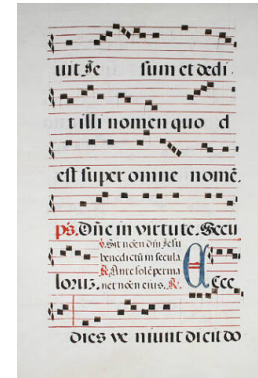 uit Je sum et dedi
t illi nomen quo d
est super omne nomē.
ps. Dn̄e in virtute. Secu
℣. Sit noēn dn̄i Jesu
benedictū in secula.
℟. Ante solē perma
net noēn eius. ℟.
loruz. Ecce
dies ve niunt dicit do